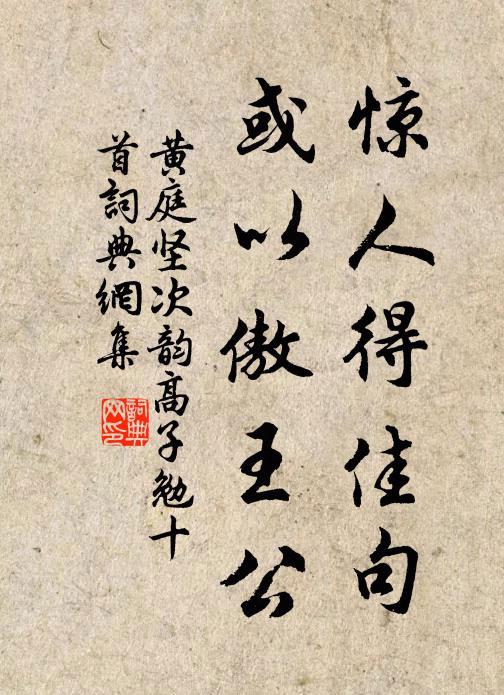 惊人得佳句
或以傲王公
黄庭坚次韵高子勉十
首词典網集
詞典
网印